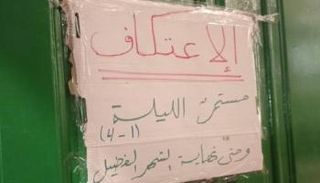 الإعتكاف
مستمر الليلة
(4-1)
وحتى نهاية الشهر الفضيل